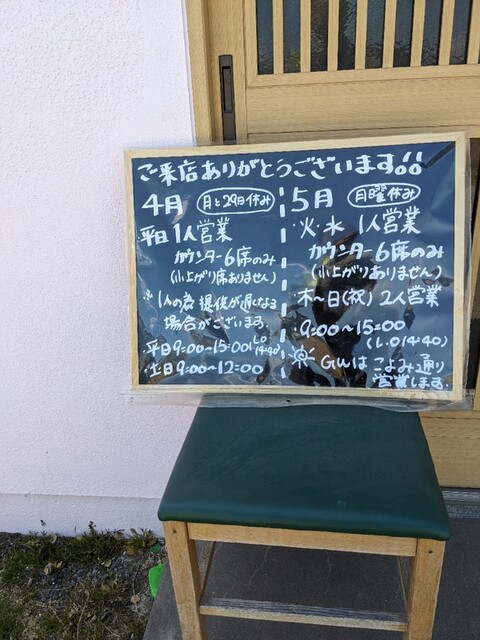 ご来店ありがとうございます!!
4月 月と29日休み
・平日 1人営業
カウンター6席のみ
(小上がり席ありません)
※1人の為 提供が遅くなる
場合がございます
・平日9:00〜15:00(LO 14:40)
・土日9:00〜12:00
5月 月曜休み
・火・水 1人営業
カウンター6席のみ
(小上がりありません)
・木〜日(祝) 2人営業
・9:00〜15:00
(L.O 14:40)
GWは こよみ通り
営業します。